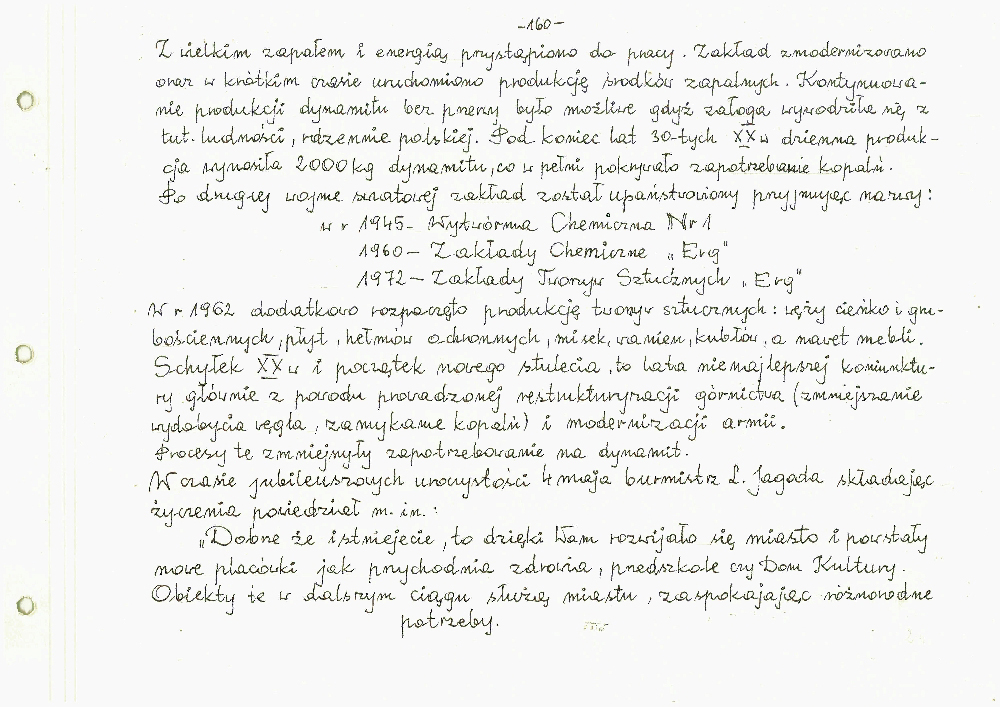 -160-
Z wielkim zapałem i energią przystąpiono do pracy. Zakład zmodernizowano
oraz w krótkim czasie uruchomiono produkcję środków zapalnych. Kontynuowa-
nie produkcji dynamitu bez przerwy było możliwe gdyż załoga wywodziła się z
tut. ludności, rdzennie polskiej. Pod koniec lat 30-tych XX w dzienna produk-
cja wynosiła 2000 kg dynamitu, co w pełni pokrywało zapotrzebowanie kopalń.
Po drugiej wojnie światowej zakład został upaństwowiony przyjmując nazwy:
w r 1945- Wytwórnia Chemiczna Nr 1
1960- Zakłady Chemiczne „Erg"
1972- Zakłady Tworzyw Sztucznych „Erg"
W r 1962 dodatkowo rozpoczęto produkcję tworzyw sztucznych: węży cieńko i gru-
bościennych, płyt, hełmów ochronnych, misek, wanien, kubłów, a nawet mebli.
Schyłek XX w i początek nowego stulecia, to lata nienajlepszej koniunktu-
ry głównie z powodu prowadzonej restrukturyzacji górnictwa (zmniejszanie
wydobycia węgla, zamykanie kopalń) i modernizacji armii.
Procesy te zmniejszyły zapotrzebowanie na dynamit.
W czasie jubileuszowych uroczystości 4 maja burmistrz L. Jagoda składając
życzenia powiedział m. in.:
„Dobrze że istniejecie, to dzięki Wam rozwijało się miasto i powstały
nowe placówki jak przychodnia zdrowia, przedszkole czy Dom Kultury.
Obiekty te w dalszym ciągu służą miastu, zaspokajając różnorodne
potrzeby.